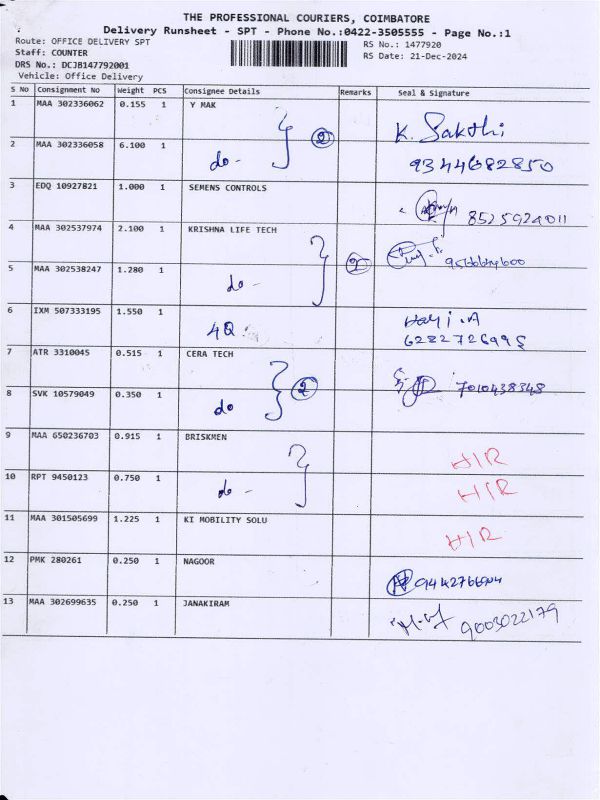 THE PROFESSIONAL COURIERS, COIMBATORE
Delivery Runsheet - SPT - Phone No.:0422-3505555 - Page No.:1
Route: OFFICE DELIVERY SPT
RS No.: 1477920
Staff: COUNTER
RS Date: 21-Dec-2024
DRS No.: DCJB147792001
Vehicle: Office Delivery
S No Consignment No Weight PCS Consignee Details Remarks Seal & Signature
1 MAA 302336062 0.155 1 Y MAK K. Sakthi
2 MAA 302336058 6.100 1 do- 2 9344682850
3 EDQ 10927821 1.000 1 SEMENS CONTROLS 8525924011
4 MAA 302537974 2.100 1 KRISHNA LIFE TECH
5 MAA 302538247 1.280 1 do - 2
6 IXM 507333195 1.550 1 4Q Hari.A
628272699
7 ATR 3310045 0.515 1 CERA TECH 2 7010438348
8 SVK 10579049 0.350 1 do
9 MAA 650236703 0.915 1 BRISKMEN H/R
10 RPT 9450123 0.750 1 do - H/R
11 MAA 301505699 1.225 1 KI MOBILITY SOLU H/R
12 PMK 280261 0.250 1 NAGOOR
13 MAA 302699635 0.250 1 JANAKIRAM 9003022179